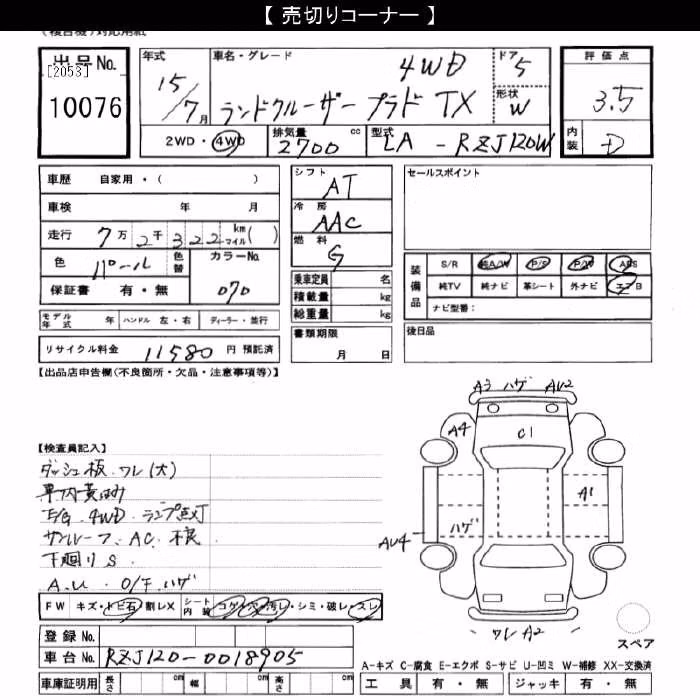 【 売切りコーナー 】
出品No.
[2053]
10076
年式
15/7月
車名・グレード
4WD
ランドクルーザー プラド TX
ドア
5
形状
W
評価点
3.5
内装
D
2WD・4WD
排気量
2700 cc
型式
LA - RZJ120W
車歴 自家用・( )
車検 年 月
走行 7万 2千 322 km マイル( )
色 パール 色替
カラーNo.
070
保証書 有・無
シフト
AT
冷房
AAC
燃料
G
乗車定員 名
積載量 kg
総重量 kg
書類期限
月 日
セールスポイント
装備品
S/R 純A/W P/S P/W ABS
純TV 純ナビ 革シート 外ナビ エアB
ナビ型番:
後日品
モデル年式 年 ハンドル 左・右 ディーラー・並行
リサイクル料金 11580 円 預託済
【出品店申告欄(不良箇所・欠品・注意事項等)】
A3 ハゲ AU2
A4
C1
A1
ハゲ
AU4
ワレ A2
スペア
【検査員記入】
ダッシュ板、ワレ(大)
車内黄ばみ
E/G 4WD ランプ点灯
サンルーフ、AC、不良
下廻り S
A.U O/F ハゲ
FW キズ・トビ石 割レX シート内装 コゲ・穴・汚レ・シミ・破レ・スレ
登録No.
車台No. RZJ120-0018905
車庫証明用 長さ cm 幅 cm 高さ cm
A-キズ C-腐食 E-エクボ S-サビ U-凹ミ W-補修 XX-交換済
工具 有・無 ジャッキ 有・無